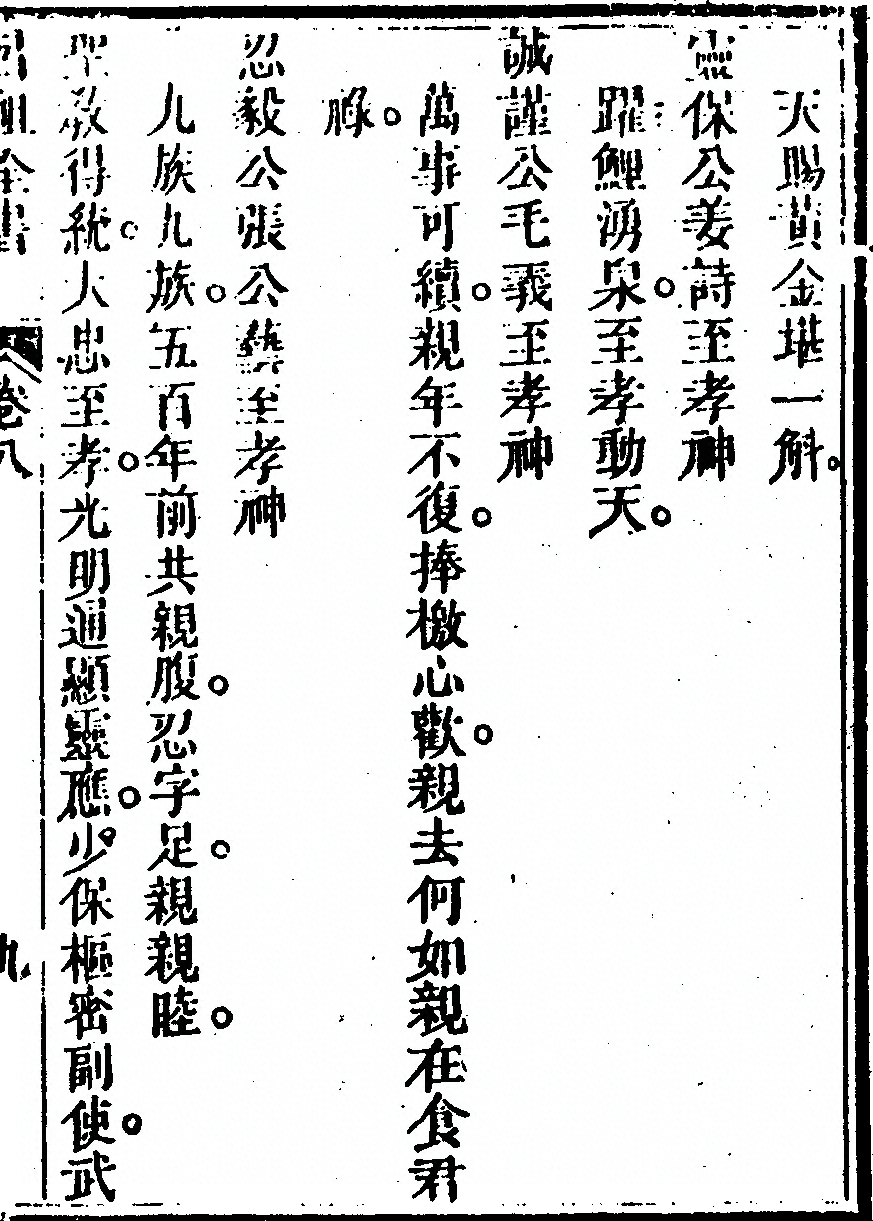 天賜黃金堪一斛。
靈保公姜詩至孝神
躍鯉湧泉。至孝動天。
誠謹公毛義至孝神
萬事可續。親年不復。捧檄心歡。親去何如親在食君
祿。
忍毅公張公藝至孝神
九族九族。五百年前共親腹。忍字足。親親睦。
聖教得統。大忠至孝。光明通顯靈應。少保樞密副使。武
呂祖全書 卷八 九